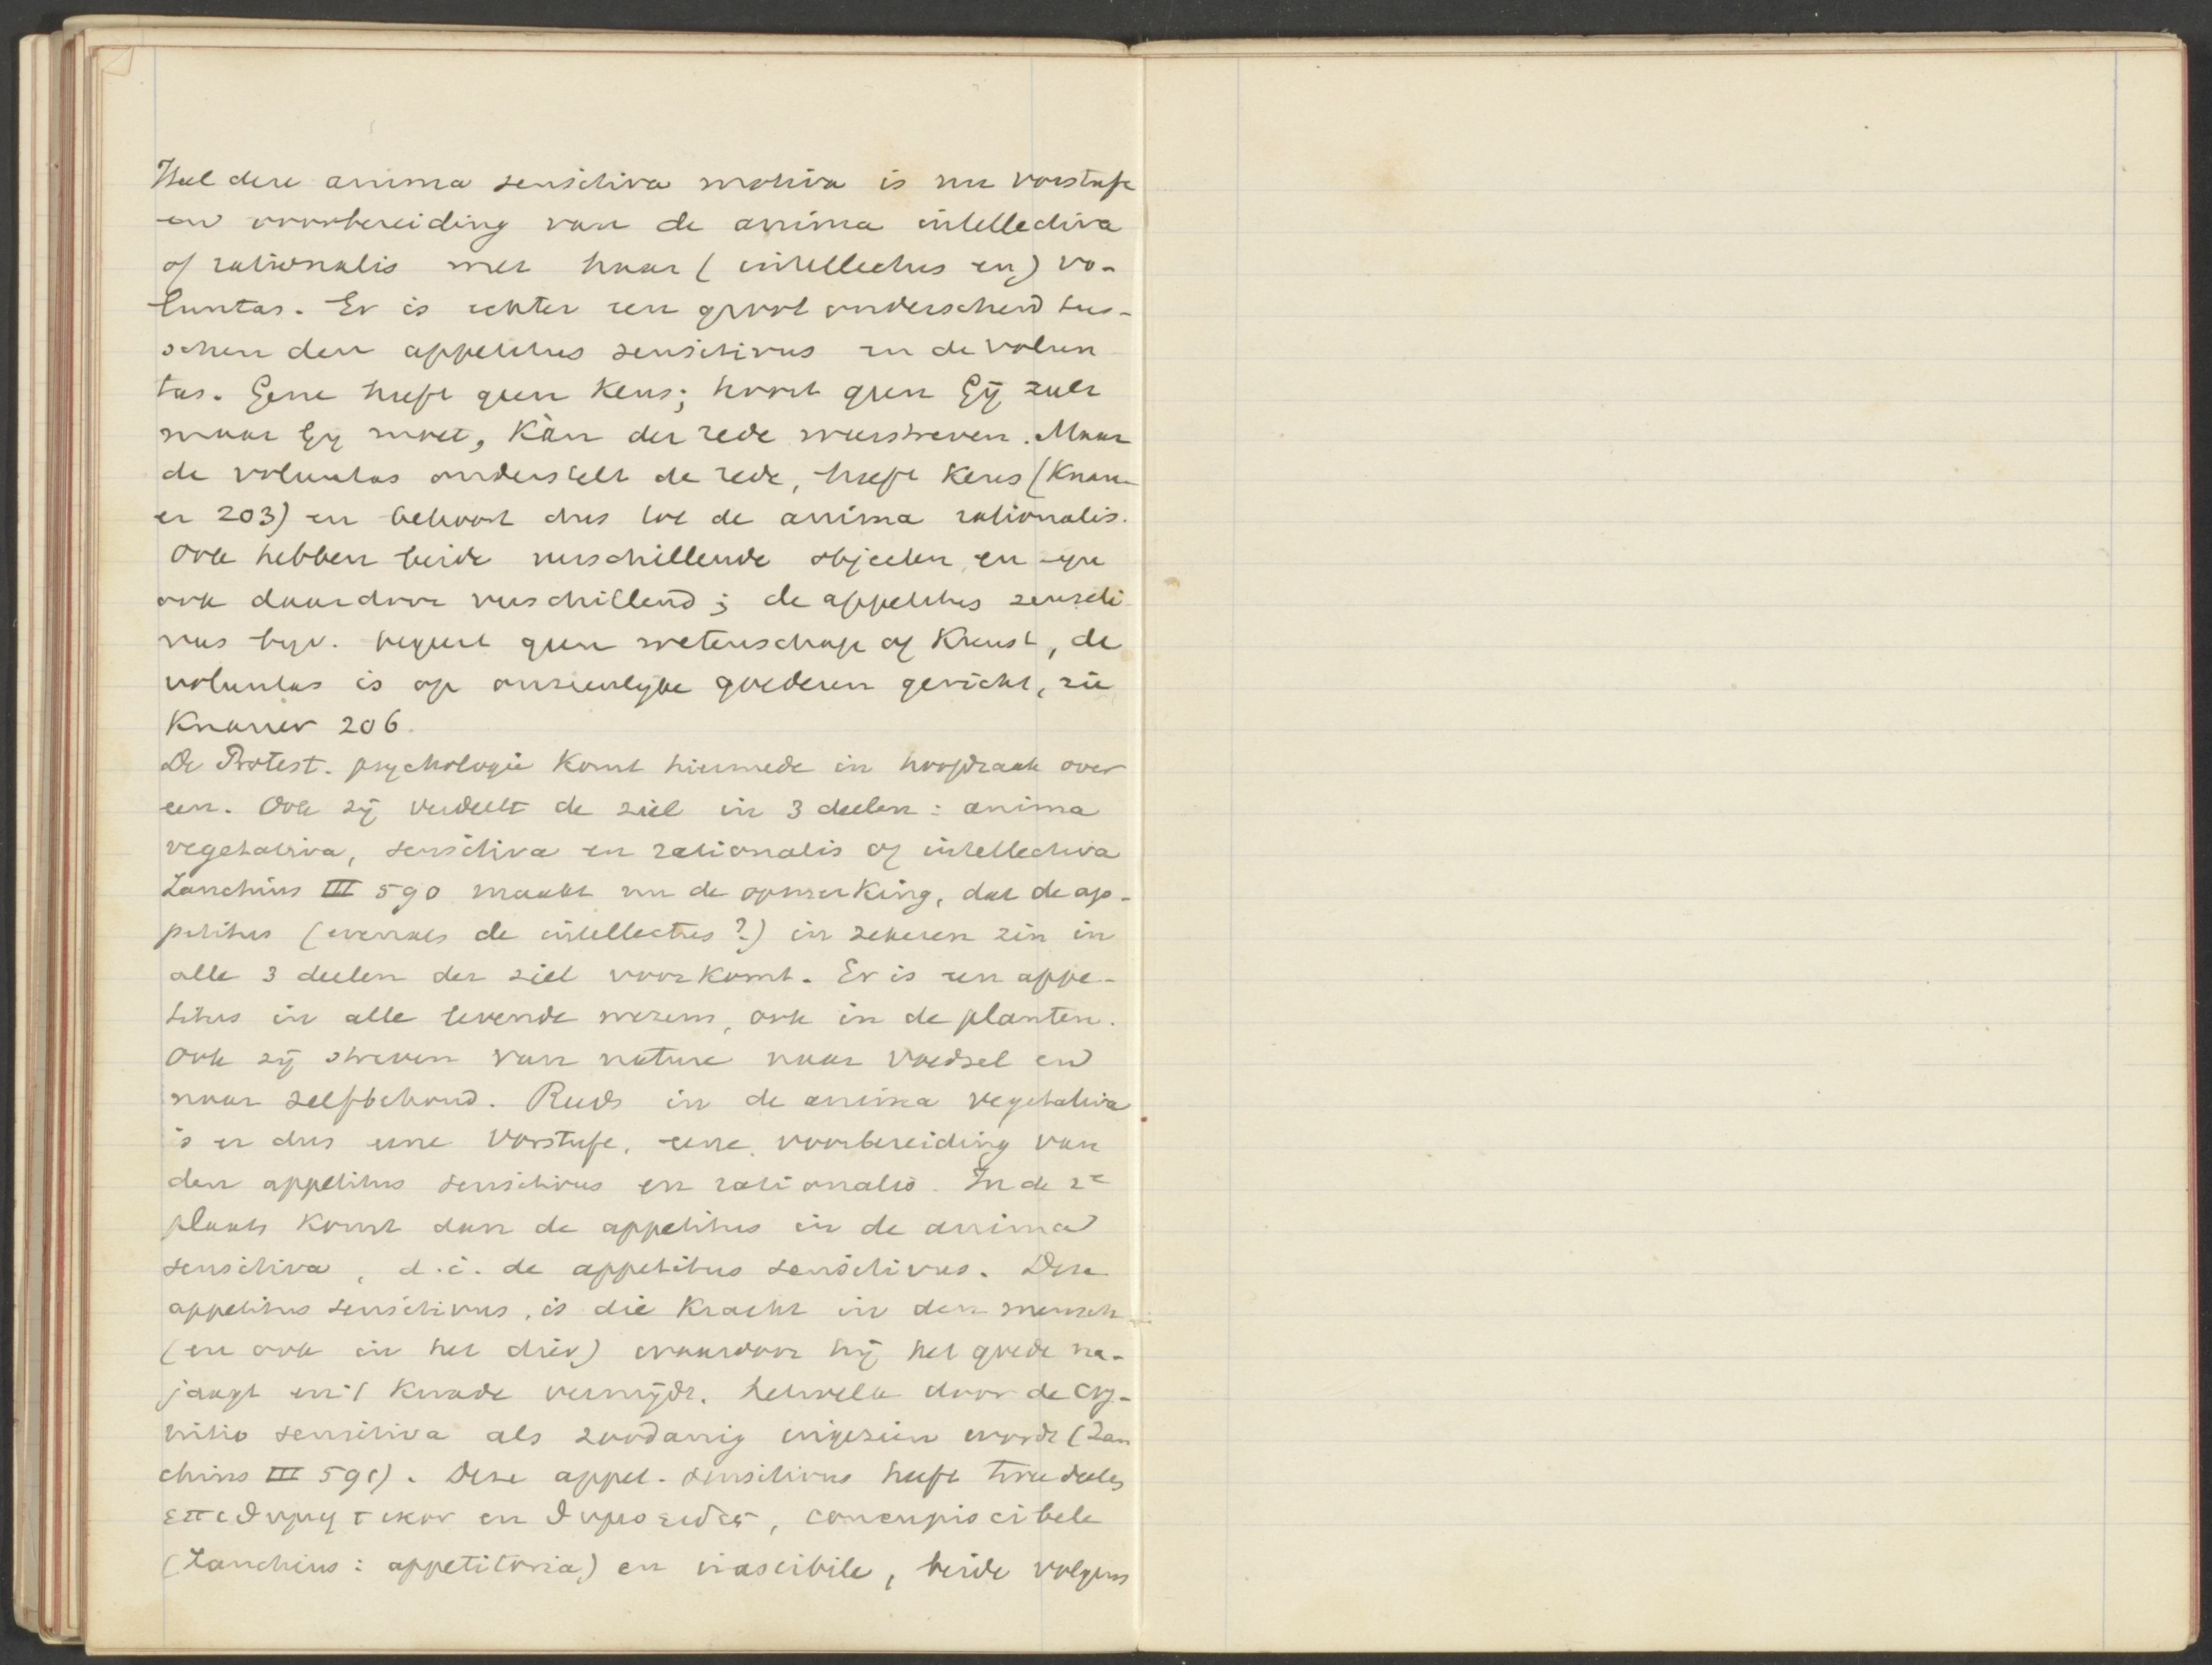 Heel deze anima sensitiva motiva is nu Vorstufe
en voorbereiding van de anima intellectiva
of rationalis met haar (intellectus en) vo-
luntas. Er is echter een groot onderscheid tus-
schen den appetitus sensitivus en de volun
tas. Gene heeft geen keus; hoort geen Gij zult
maar Gij moet, kàn der rede weerstreven. Maar
de voluntas onderstelt de rede, heeft keus (Knau-
er 203) en behoort dus tot de anima rationalis.
Ook hebben beide verschillende objecten en zijn
ook daardoor verschillend; de appetitus sensiti
vus bijv. begeert geen wetenschap of kunst, de
voluntas is op onzienlijke goederen gericht, zie
Knauer 206.
De Protest. psychologie komt hiermede in hoofdzaak over
een. Ook zij verdeelt de ziel in 3 deelen: anima
vegetativa, sensitiva en rationalis of intellectiva
Zanchius III 590 maakt nu de opmerking, dat de ap-
petitus (evenals de intellectus?) in zekeren zin in
alle 3 deelen der ziel voorkomt. Er is een appe-
titus in alle levende wezens, ook in de planten.
Ook zij streven van nature naar voedsel en
naar zelfbehoud. Reeds in de anima vegetativa
is er dus eene Vorstufe, eene voorbereiding van
den appetitus sensitivus en rationalis. In de 2e
plaats komt dan de appetitus in de anima
sensitiva, d.i. de appetitus sensitivus. Deze
appetitus sensitivus, is die kracht in den mensch
(en ook in het dier) waardoor hij het goede na-
jaagt en 't kwade vermijdt, hetwelk door de cog-
nitio sensitiva als zoodanig ingezien wordt (Zan
chius III 591). Deze appet. sensitivus heeft twee deelen
επιθυμητικον en θυμοειδες, concupiscibele
(Zanchius: appetitoria) en irascibile, beide volgens